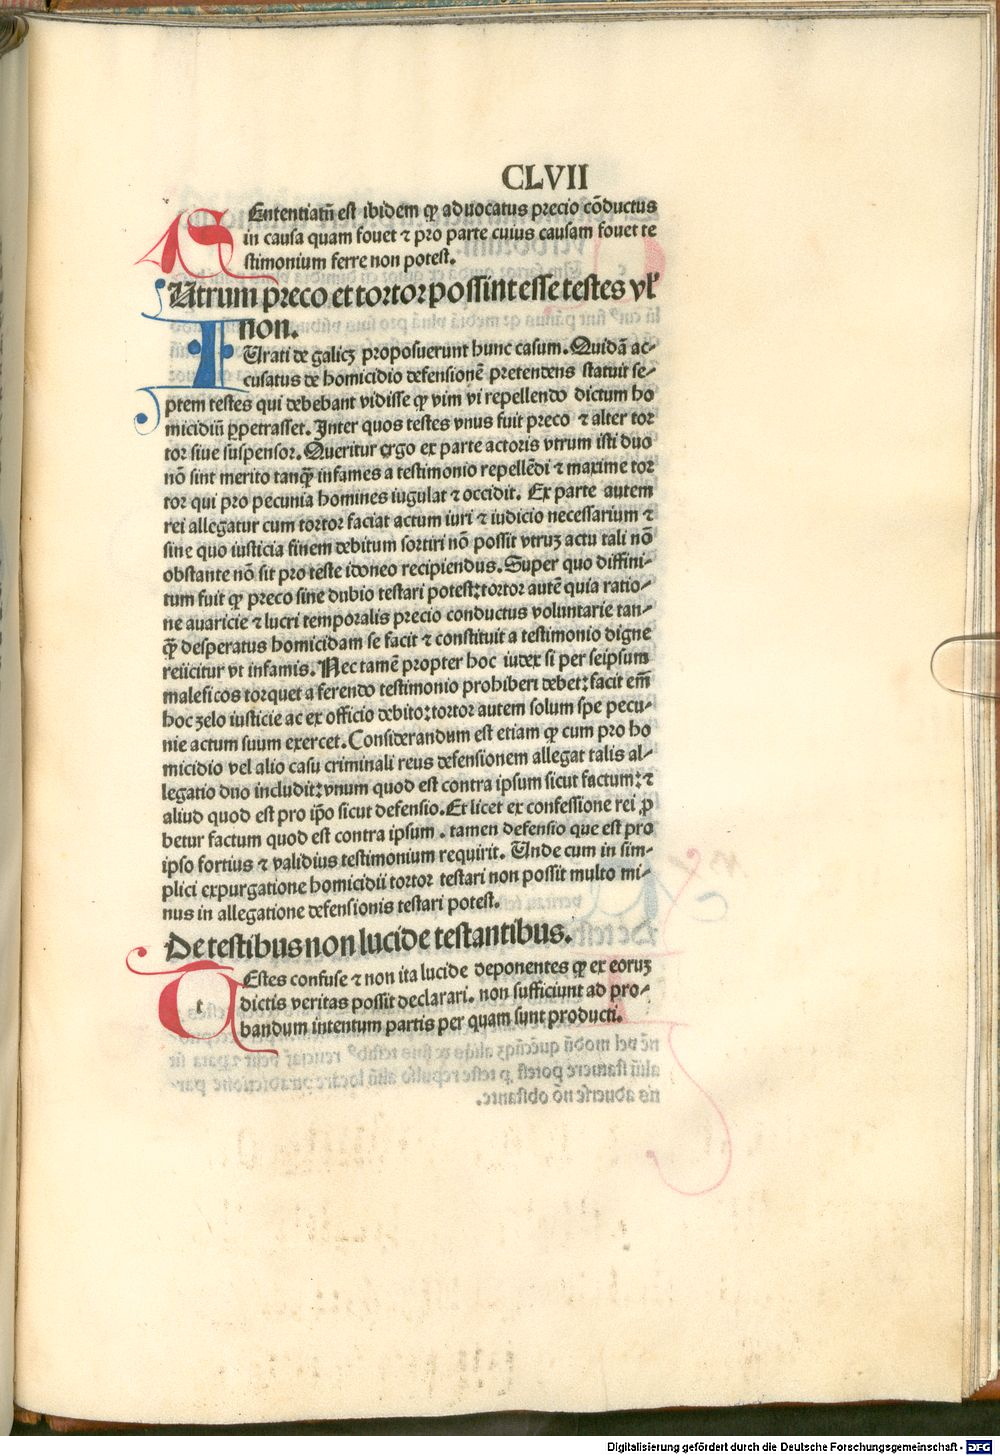 CLVII
SEntentiatū est ibidem ꝙ aduocatus precio cōductus
in causa quam fouet ⁊ pro parte cuius causam fouet te
stimonium ferre non potest.
Utrum preco et tortor possint esse testes vl'
non.
IUrati de galicꝫ proposuerunt hunc casum. Quidā ac⸗
cusatus de homicidio defensionē pretendens statuit se⸗
ptem testes qui debebant vidisse ꝙ vim vi repellendo dictum ho
micidiū ꝑpetrasset. Inter quos testes vnus fuit preco ⁊ alter tor
tor siue suspensor. Queritur ergo ex parte actoris vtrum isti duo
nō sint merito tanqꝫ̄ infames a testimonio repellēdi ⁊ maxime tor
tor qui pro pecunia homines iugulat ⁊ occidit. Ex parte autem
rei allegatur cum tortor faciat actum iuri ⁊ iudicio necessarium ⁊
sine quo iusticia finem debitum sortiri nō possit vtruꝫ actu tali nō
obstante nō sit pro teste idoneo recipiendus. Super quo diffini⸗
tum fuit ꝙ preco sine dubio testari potest: tortor autē quia ratio⸗
ne auaricie ⁊ lucri temporalis precio conductus voluntarie tan⸗
qꝫ̄ desperatus homicidam se facit ⁊ constituit a testimonio digne
reiicitur vt infamis. Nec tamē propter hoc iudex si per seipsum
maleficos torquet a ferendo testimonio prohiberi debet: facit em̄
hoc zelo iusticie ac ex officio debito: tortor autem solum spe pecu⸗
nie actum suum exercet. Considerandum est etiam ꝙ cum pro ho
micidio vel alio casu criminali reus defensionem allegat talis al⸗
legatio duo includit: vnum quod est contra ipsum sicut factum: ⁊
aliud quod est pro ip̄o sicut defensio. Et licet ex confessione rei ꝓ
betur factum quod est contra ipsum . tamen defensio que est pro
ipso fortius ⁊ validius testimonium requirit. Unde cum in sim⸗
plici expurgatione homicidii tortor testari non possit multo mi⸗
nus in allegatione defensionis testari potest.
De testibus non lucide testantibus.
TEstes confuse ⁊ non ita lucide deponentes ꝙ ex eoruꝫ
dictis veritas possit declarari. non sufficiunt ad pro⸗
bandum intentum partis per quam sunt producti.
Digitalisierung gefördert durch die Deutsche Forschungsgemeinschaft - DFG